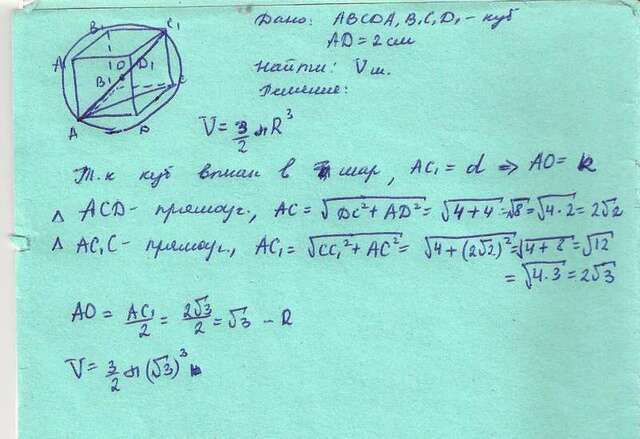 Дано: ABCDA₁B₁C₁D₁ - куб
AD = 2 см
Найти: Vш.
Решение:
B₁ C₁
A₁ O D₁
B₁ C
A D
V = 3/2 πR³
Т.к куб вписан в шар, AC₁ = d ⇒ AO = R
Δ ACD - прямоуг., AC = √(DC² + AD²) = √(4+4) = √8 = √(4·2) = 2√2
Δ AC₁C - прямоуг., AC₁ = √(CC₁² + AC²) = √(4+(2√2)²) = √(4+8) = √12
= √(4·3) = 2√3
AO = AC₁/2 = 2√3/2 = √3 - R
V = 3/2 π(√3)³